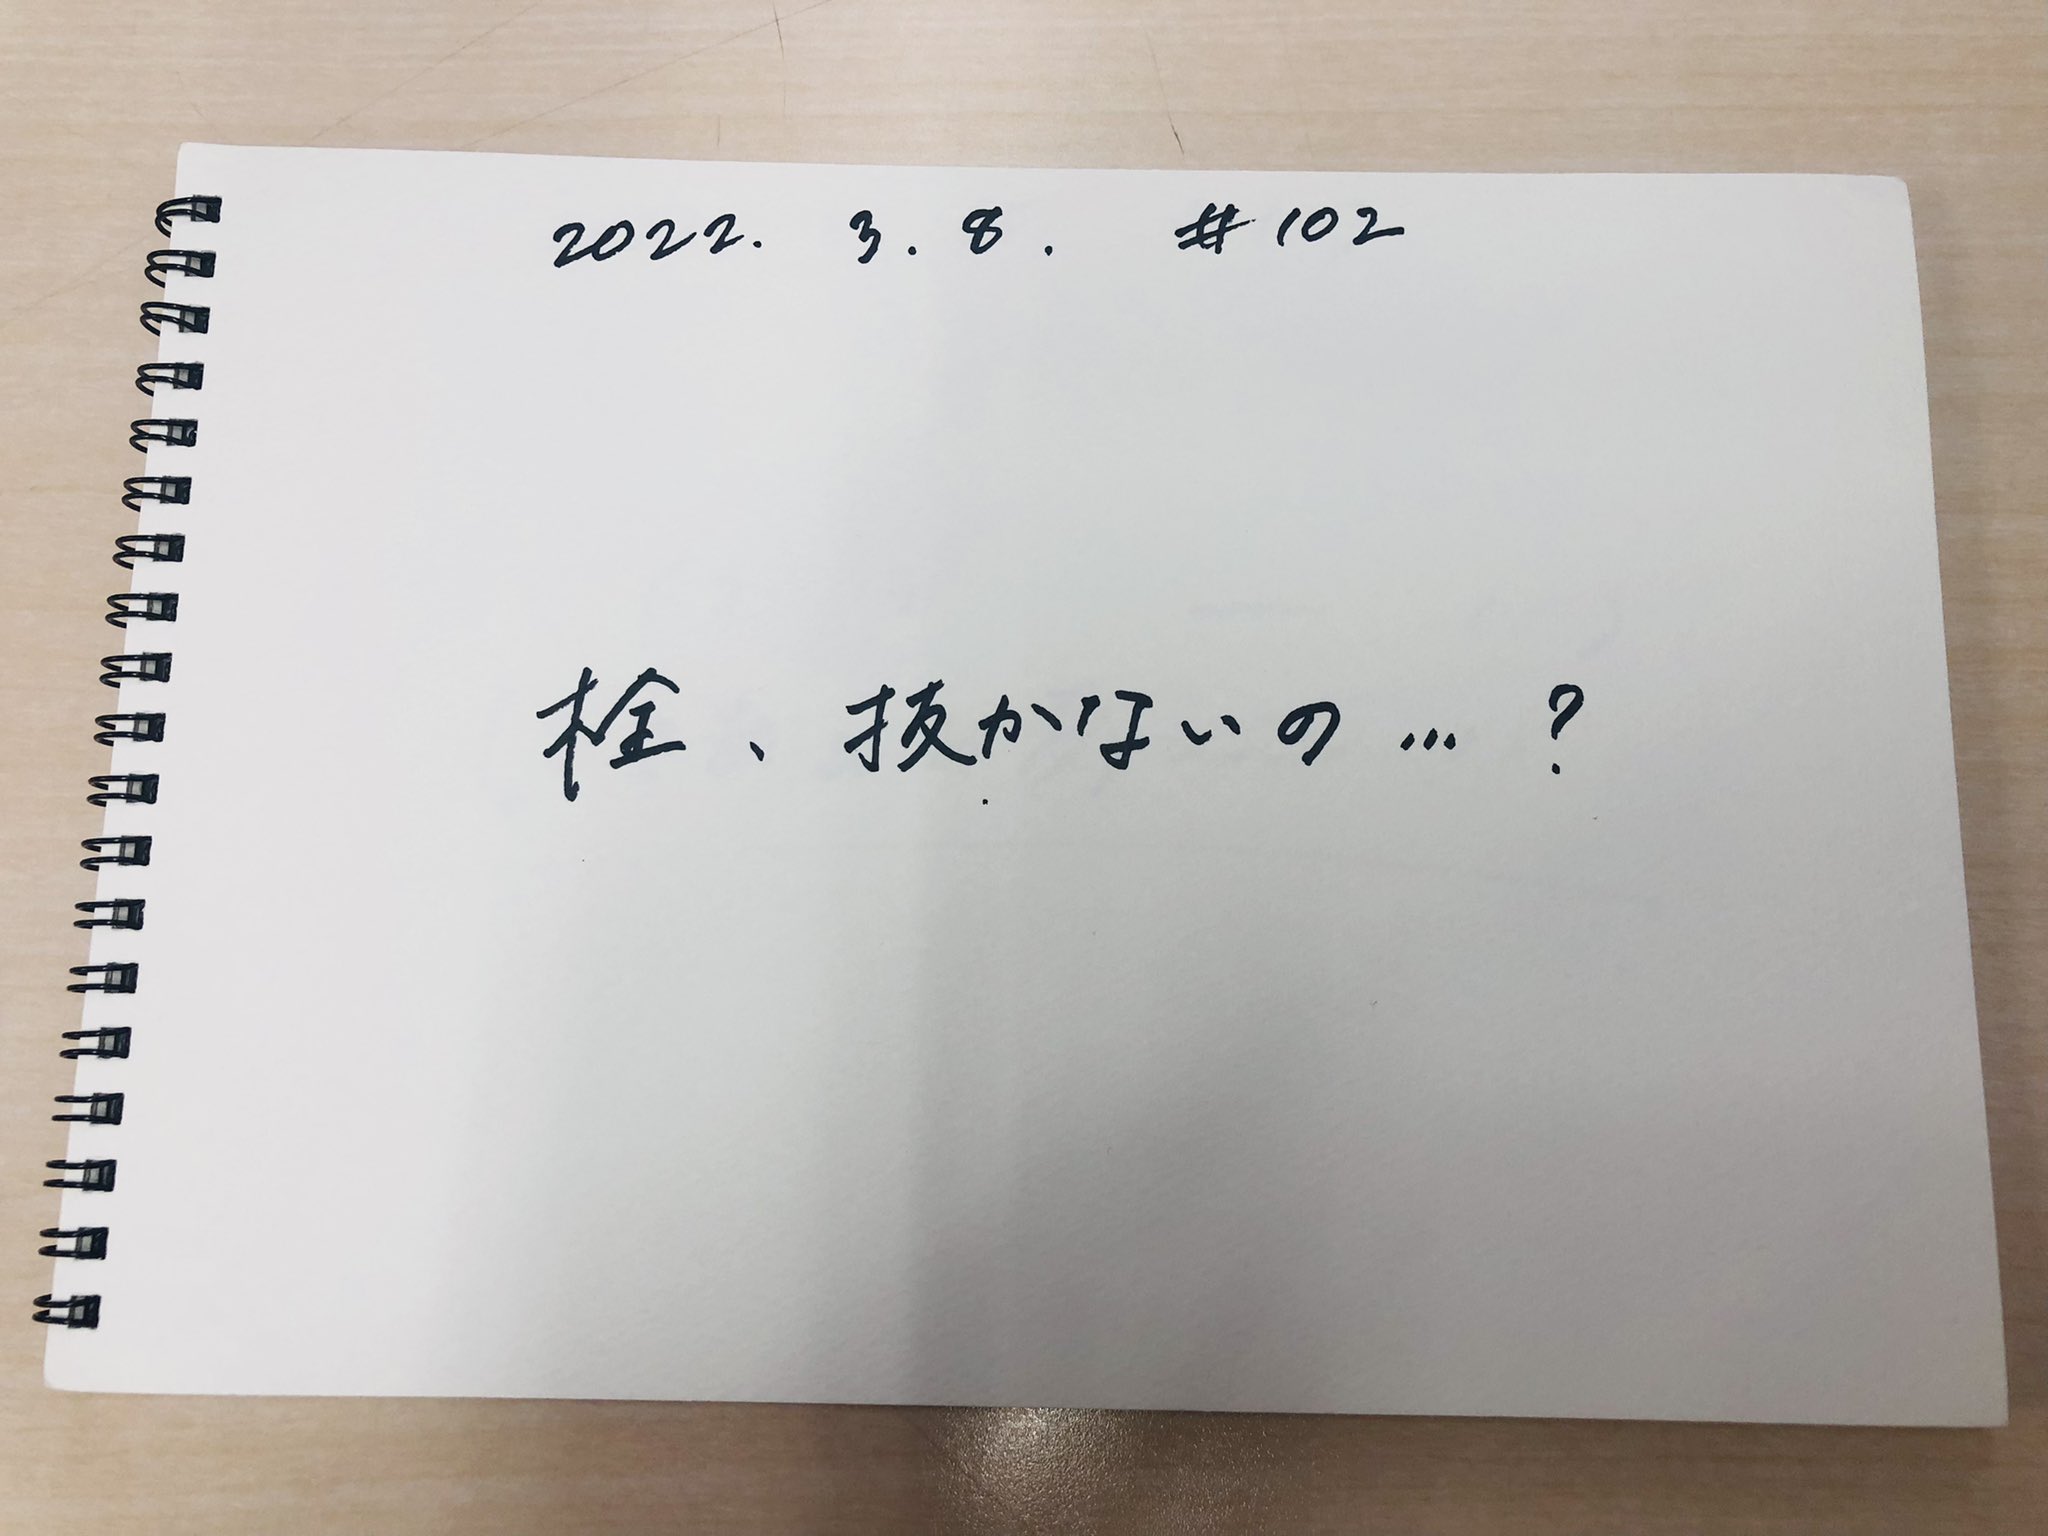 2022. 3. 8. #102
栓、抜かないの…?